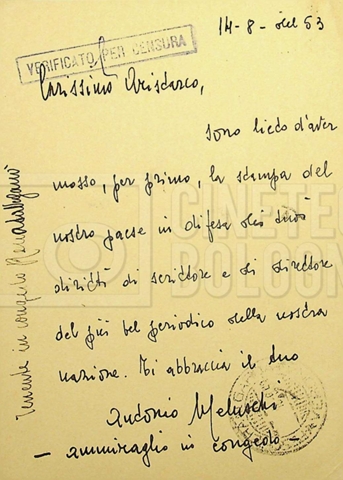 14-8-del 53
VERIFICATO PER CENSURA
Carissimo Aristarco,
sono lieto d'aver
mosso, per primo, la stampa del
nostro paese in difesa dei tuoi
diritti di scrittore e di direttore
del più bel periodico della nostra
nazione. Ti abbraccia il tuo
Antonio Meluschi
- ammiraglio in congedo -
Tenente in congedo Renata Viganò
CINETE
BOLOGN